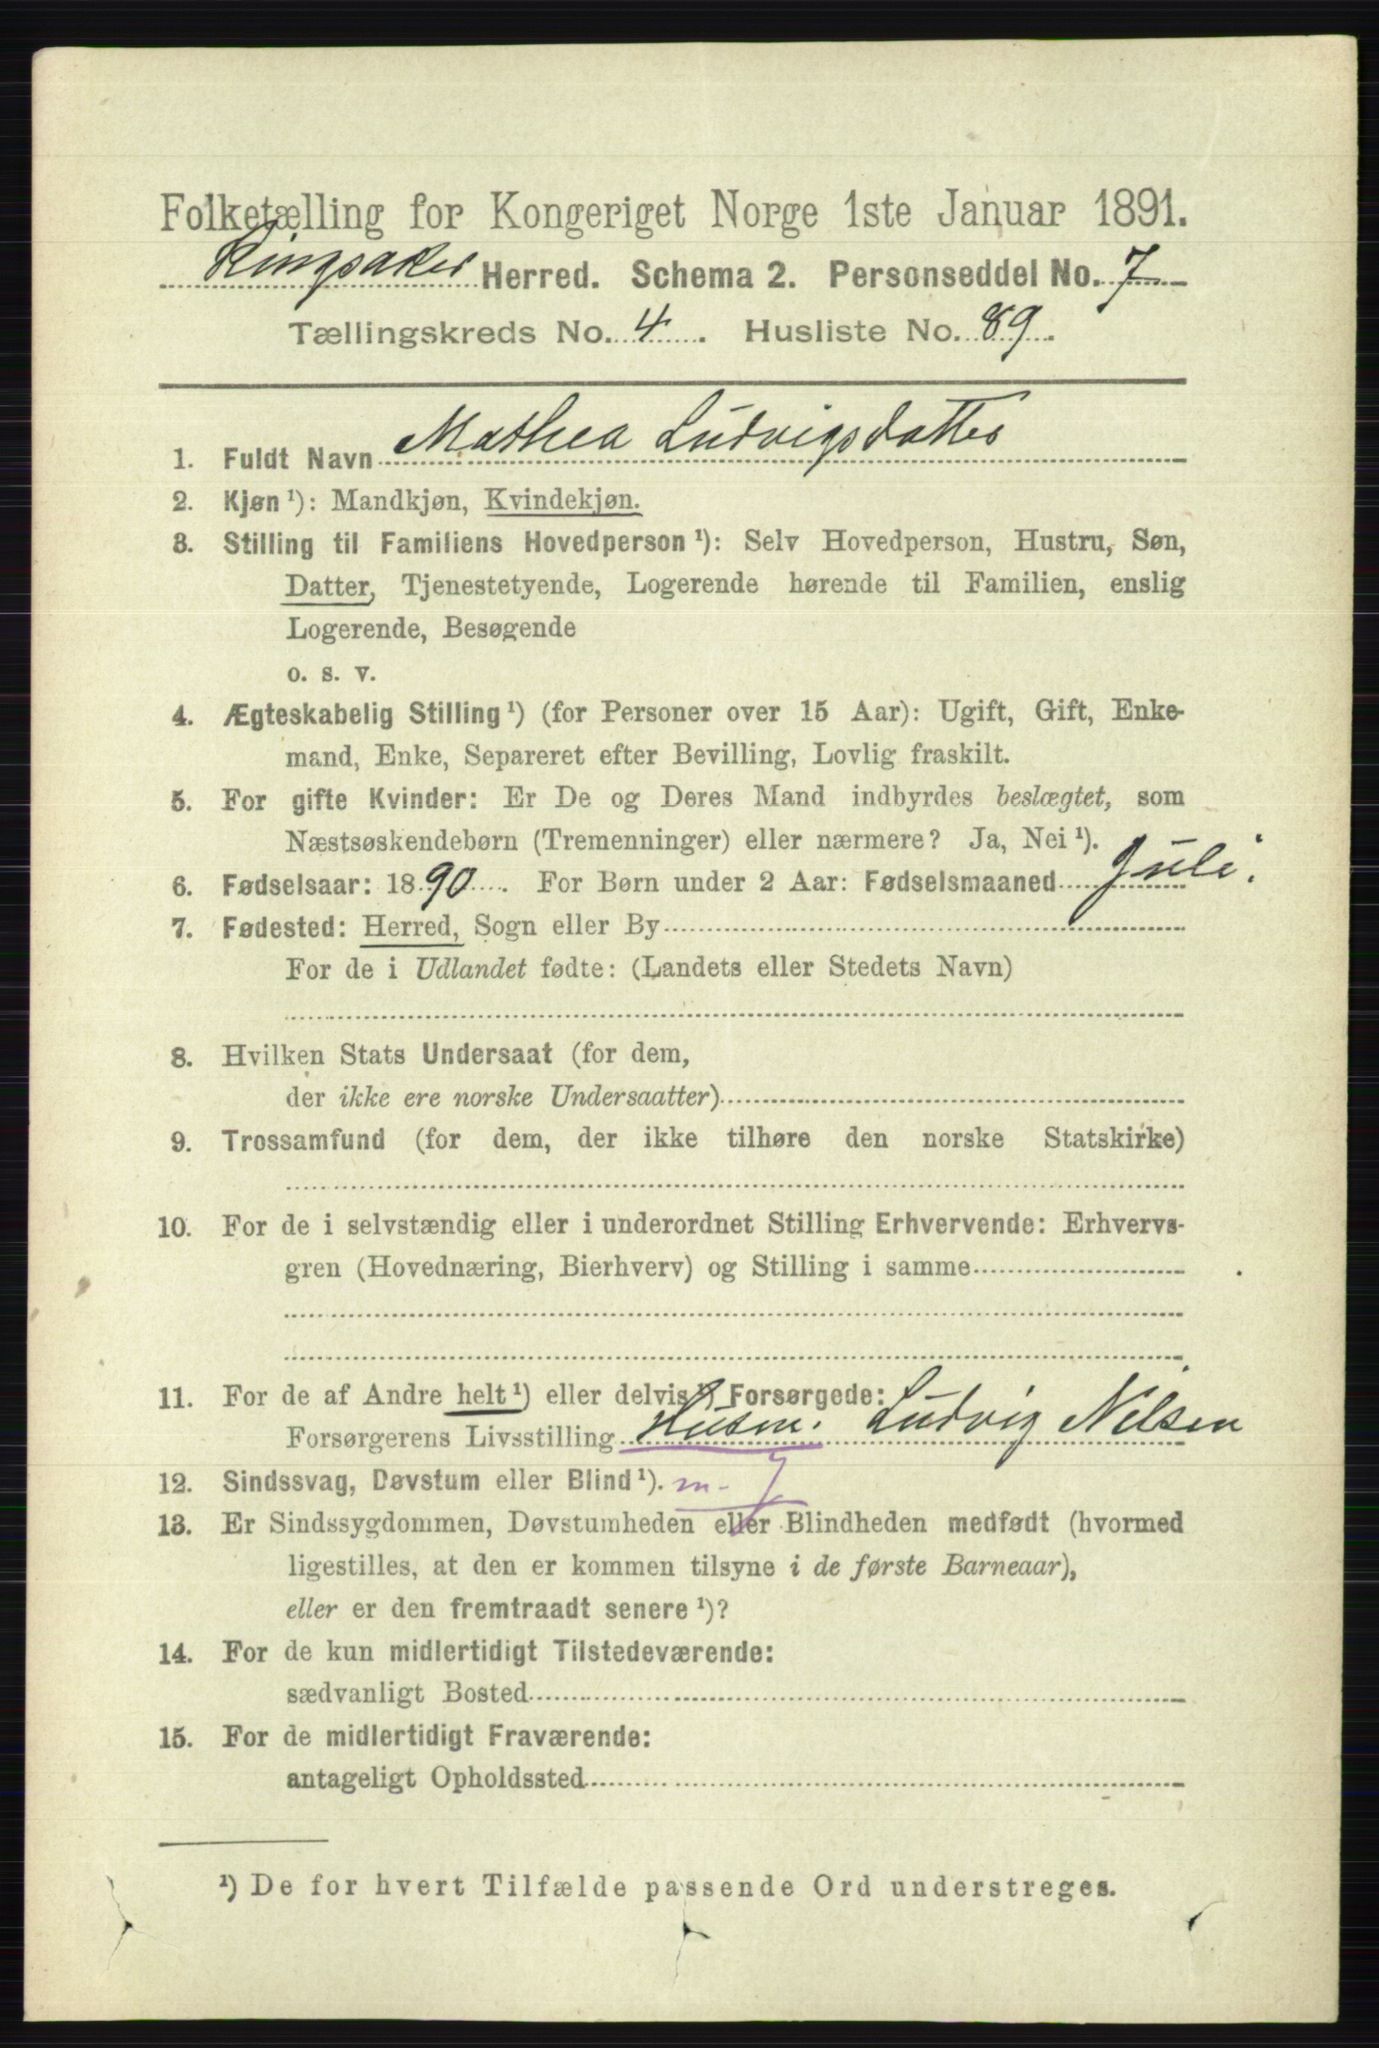 Folketælling for Kongeriget Norge 1ste Januar 1891.
Ringsaker Herred. Schema 2. Personseddel No. 7
Tællingskreds No. 4. Husliste No. 89.
1. Fuldt Navn Mathea Ludvigsdatter
2. Kjøn ¹): Mandkjøn, Kvindekjøn.
3. Stilling til Familiens Hovedperson ¹): Selv Hovedperson, Hustru, Søn,
Datter, Tjenestetyende, Logerende hørende til Familien, enslig
Logerende, Besøgende
o. s. v.
4. Ægteskabelig Stilling ¹) (for Personer over 15 Aar): Ugift, Gift, Enke-
mand, Enke, Separeret efter Bevilling, Lovlig fraskilt.
5. For gifte Kvinder: Er De og Deres Mand indbyrdes beslægtet, som
Næstsøskendebørn (Tremenninger) eller nærmere? Ja, Nei ¹).
6. Fødselsaar: 1890. For Børn under 2 Aar: Fødselsmaaned Juli.
7. Fødested: Herred, Sogn eller By
For de i Udlandet fødte: (Landets eller Stedets Navn)
8. Hvilken Stats Undersaat (for dem,
der ikke ere norske Undersaatter)
9. Trossamfund (for dem, der ikke tilhøre den norske Statskirke)
10. For de i selvstændig eller i underordnet Stilling Erhvervende: Erhvervs-
gren (Hovednæring, Bierhverv) og Stilling i samme
11. For de af Andre helt ¹) eller delvis ¹) Forsørgede:
Forsørgerens Livsstilling Husm. Ludvig Nilsen
12. Sindssvag, Døvstum eller Blind ¹). m. J
13. Er Sindssygdommen, Døvstumheden eller Blindheden medfødt (hvormed
ligestilles, at den er kommen tilsyne i de første Barneaar),
eller er den fremtraadt senere ¹)?
14. For de kun midlertidigt Tilstedeværende:
sædvanligt Bosted
15. For de midlertidigt Fraværende:
antageligt Opholdssted
¹) De for hvert Tilfælde passende Ord understreges.